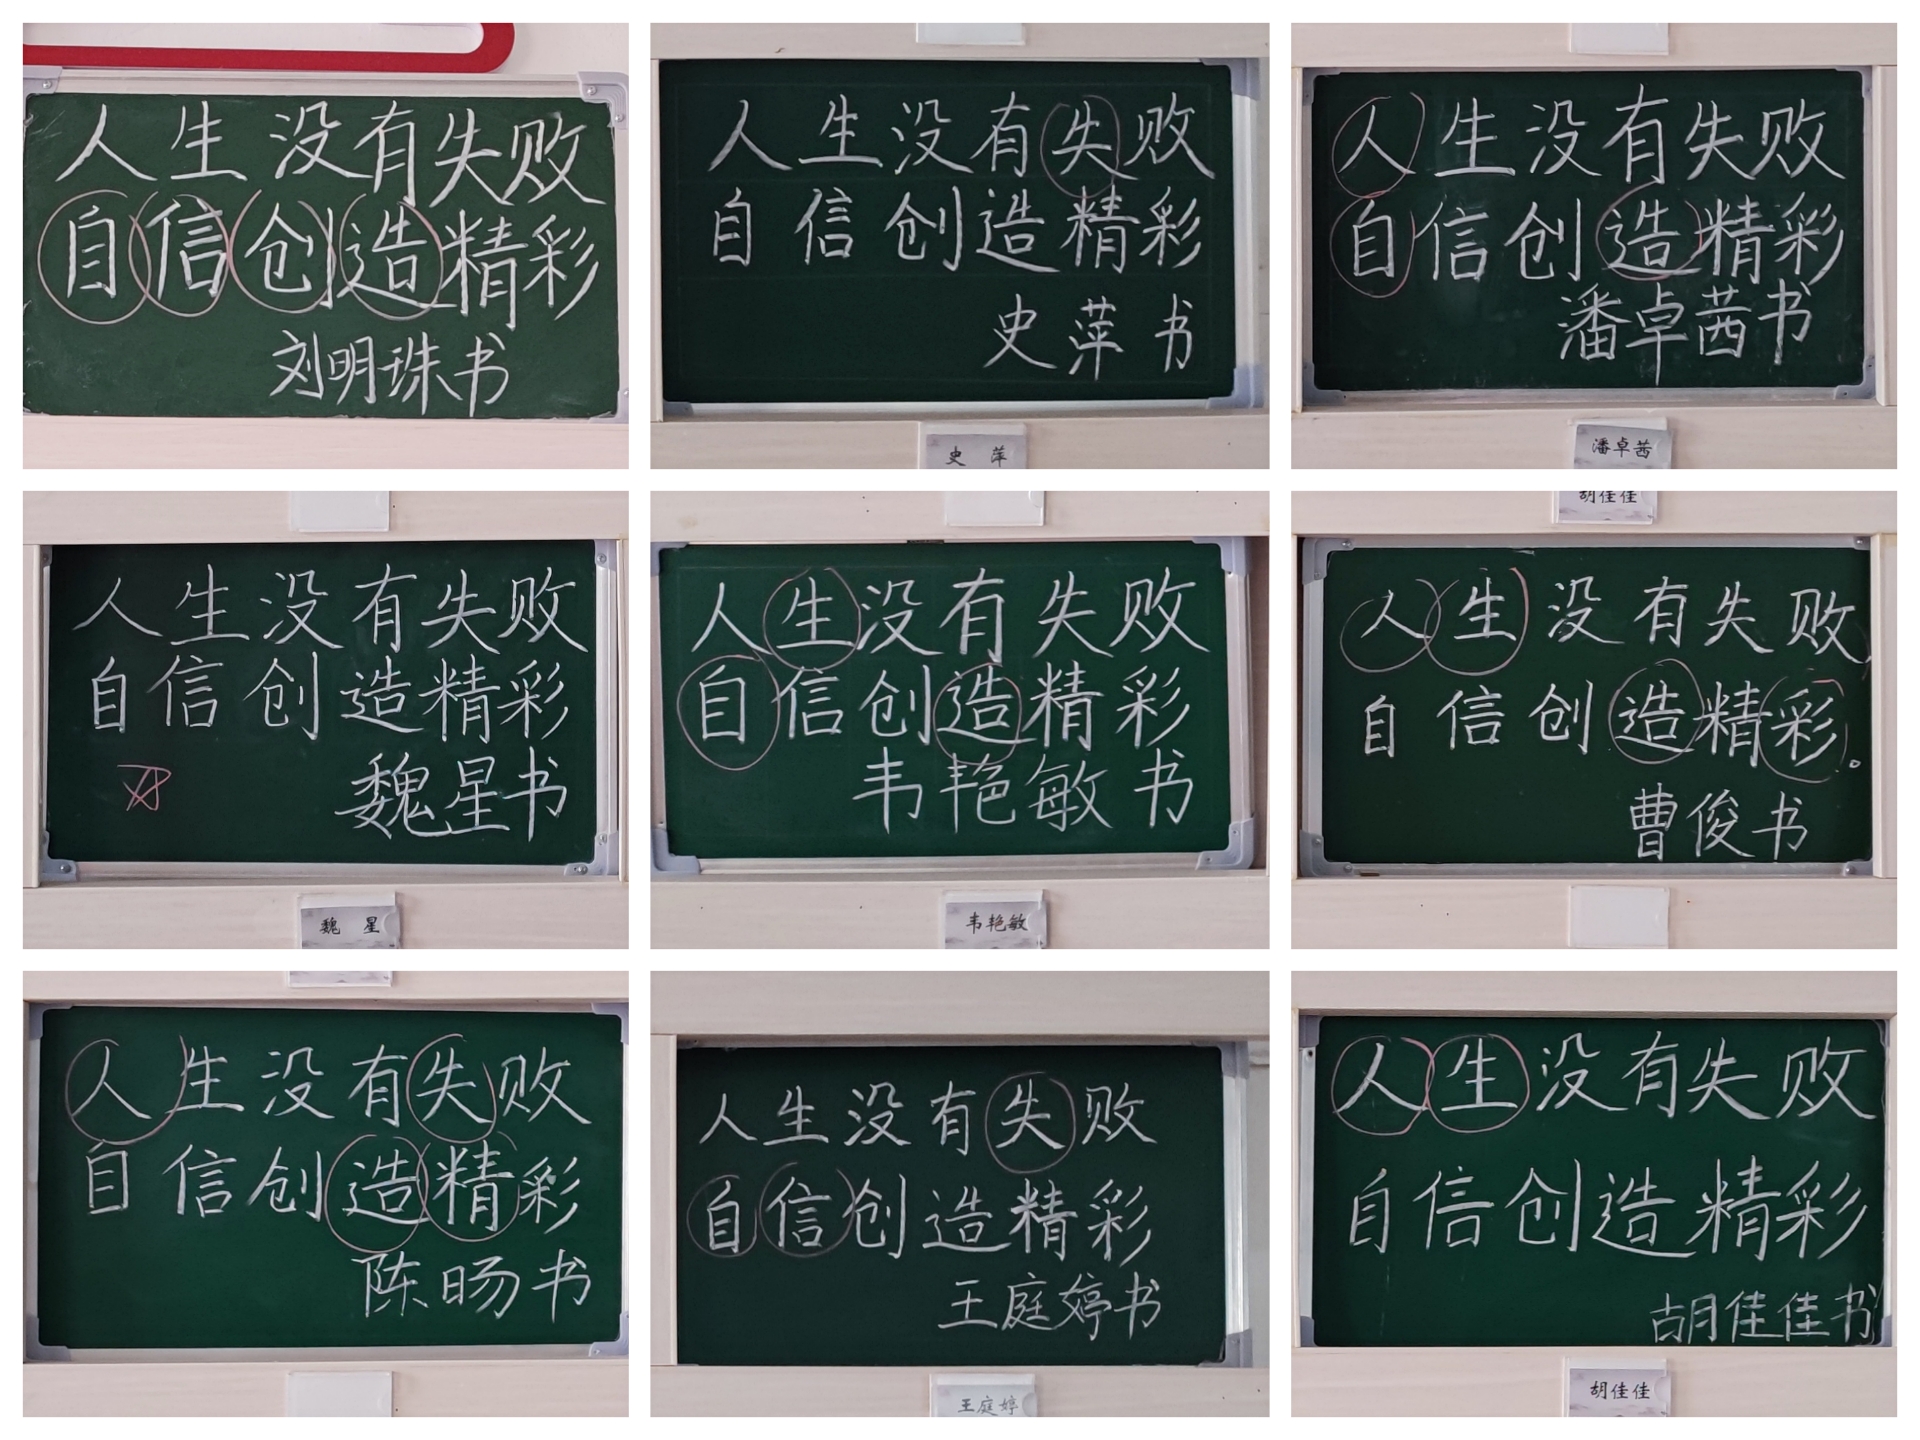 人生没有失败
自信创造精彩
刘明珠书
人生没有失败
自信创造精彩
史萍书
史 萍
人生没有失败
自信创造精彩
潘卓茜书
潘卓茜
人生没有失败
自信创造精彩
魏星书
魏 星
人生没有失败
自信创造精彩
韦艳敏书
韦艳敏
胡佳佳
人生没有失败
自信创造精彩。
曹俊书
人生没有失败
自信创造精彩
陈旸书
人生没有失败
自信创造精彩
王庭婷书
王庭婷
人生没有失败
自信创造精彩
胡佳佳书
胡佳佳